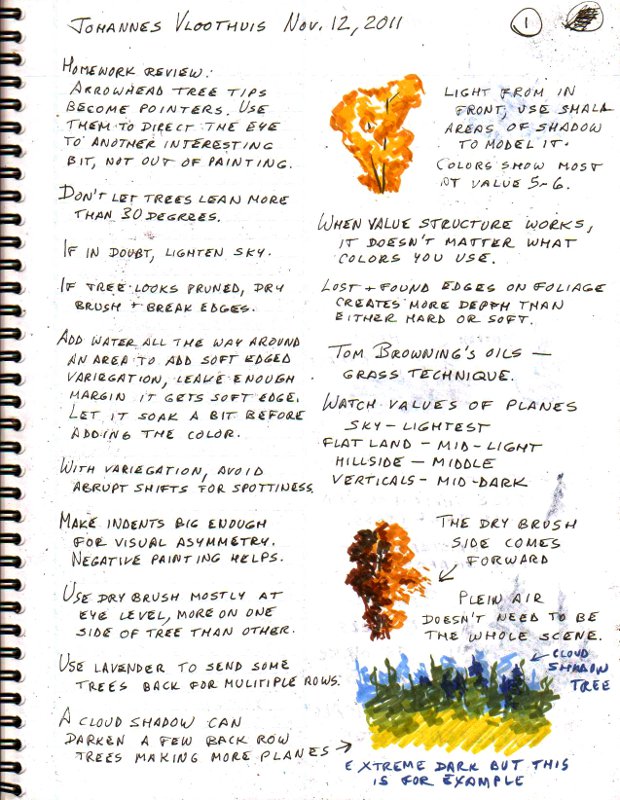 Johannes Vloothuis Nov. 12, 2011
1
Homework review:
Arrowhead tree tips
become pointers. Use
them to direct the eye
to another interesting
bit, not out of painting.
Don't let trees lean more
than 30 degrees.
If in doubt, lighten sky.
If tree looks pruned, dry
brush + break edges.
Add water all the way around
an area to add soft edged
variegation, leave enough
margin it gets soft edge.
Let it soak a bit before
adding the color.
With variegation, avoid
abrupt shifts for spottiness.
Make indents big enough
for visual asymmetry.
Negative painting helps.
Use dry brush mostly at
eye level, more on one
side of tree than other.
Use lavender to send some
trees back for mulitiple rows.
A cloud shadow can
darken a few back row
trees making more planes →
Light from in
front, use small
areas of shadow
to model it.
Colors show most
at value 5-6.
When value structure works,
it doesn't matter what
colors you use.
Lost + found edges on foliage
creates more depth than
either hard or soft.
Tom Browning's oils —
grass technique.
Watch values of planes
Sky - lightest
Flat land - mid-light
Hillside - middle
Verticals - mid-dark
The dry brush
side comes
forward
Plein air
doesn't need to be
the whole scene.
← cloud
shadow
tree
Extreme dark but this
is for example